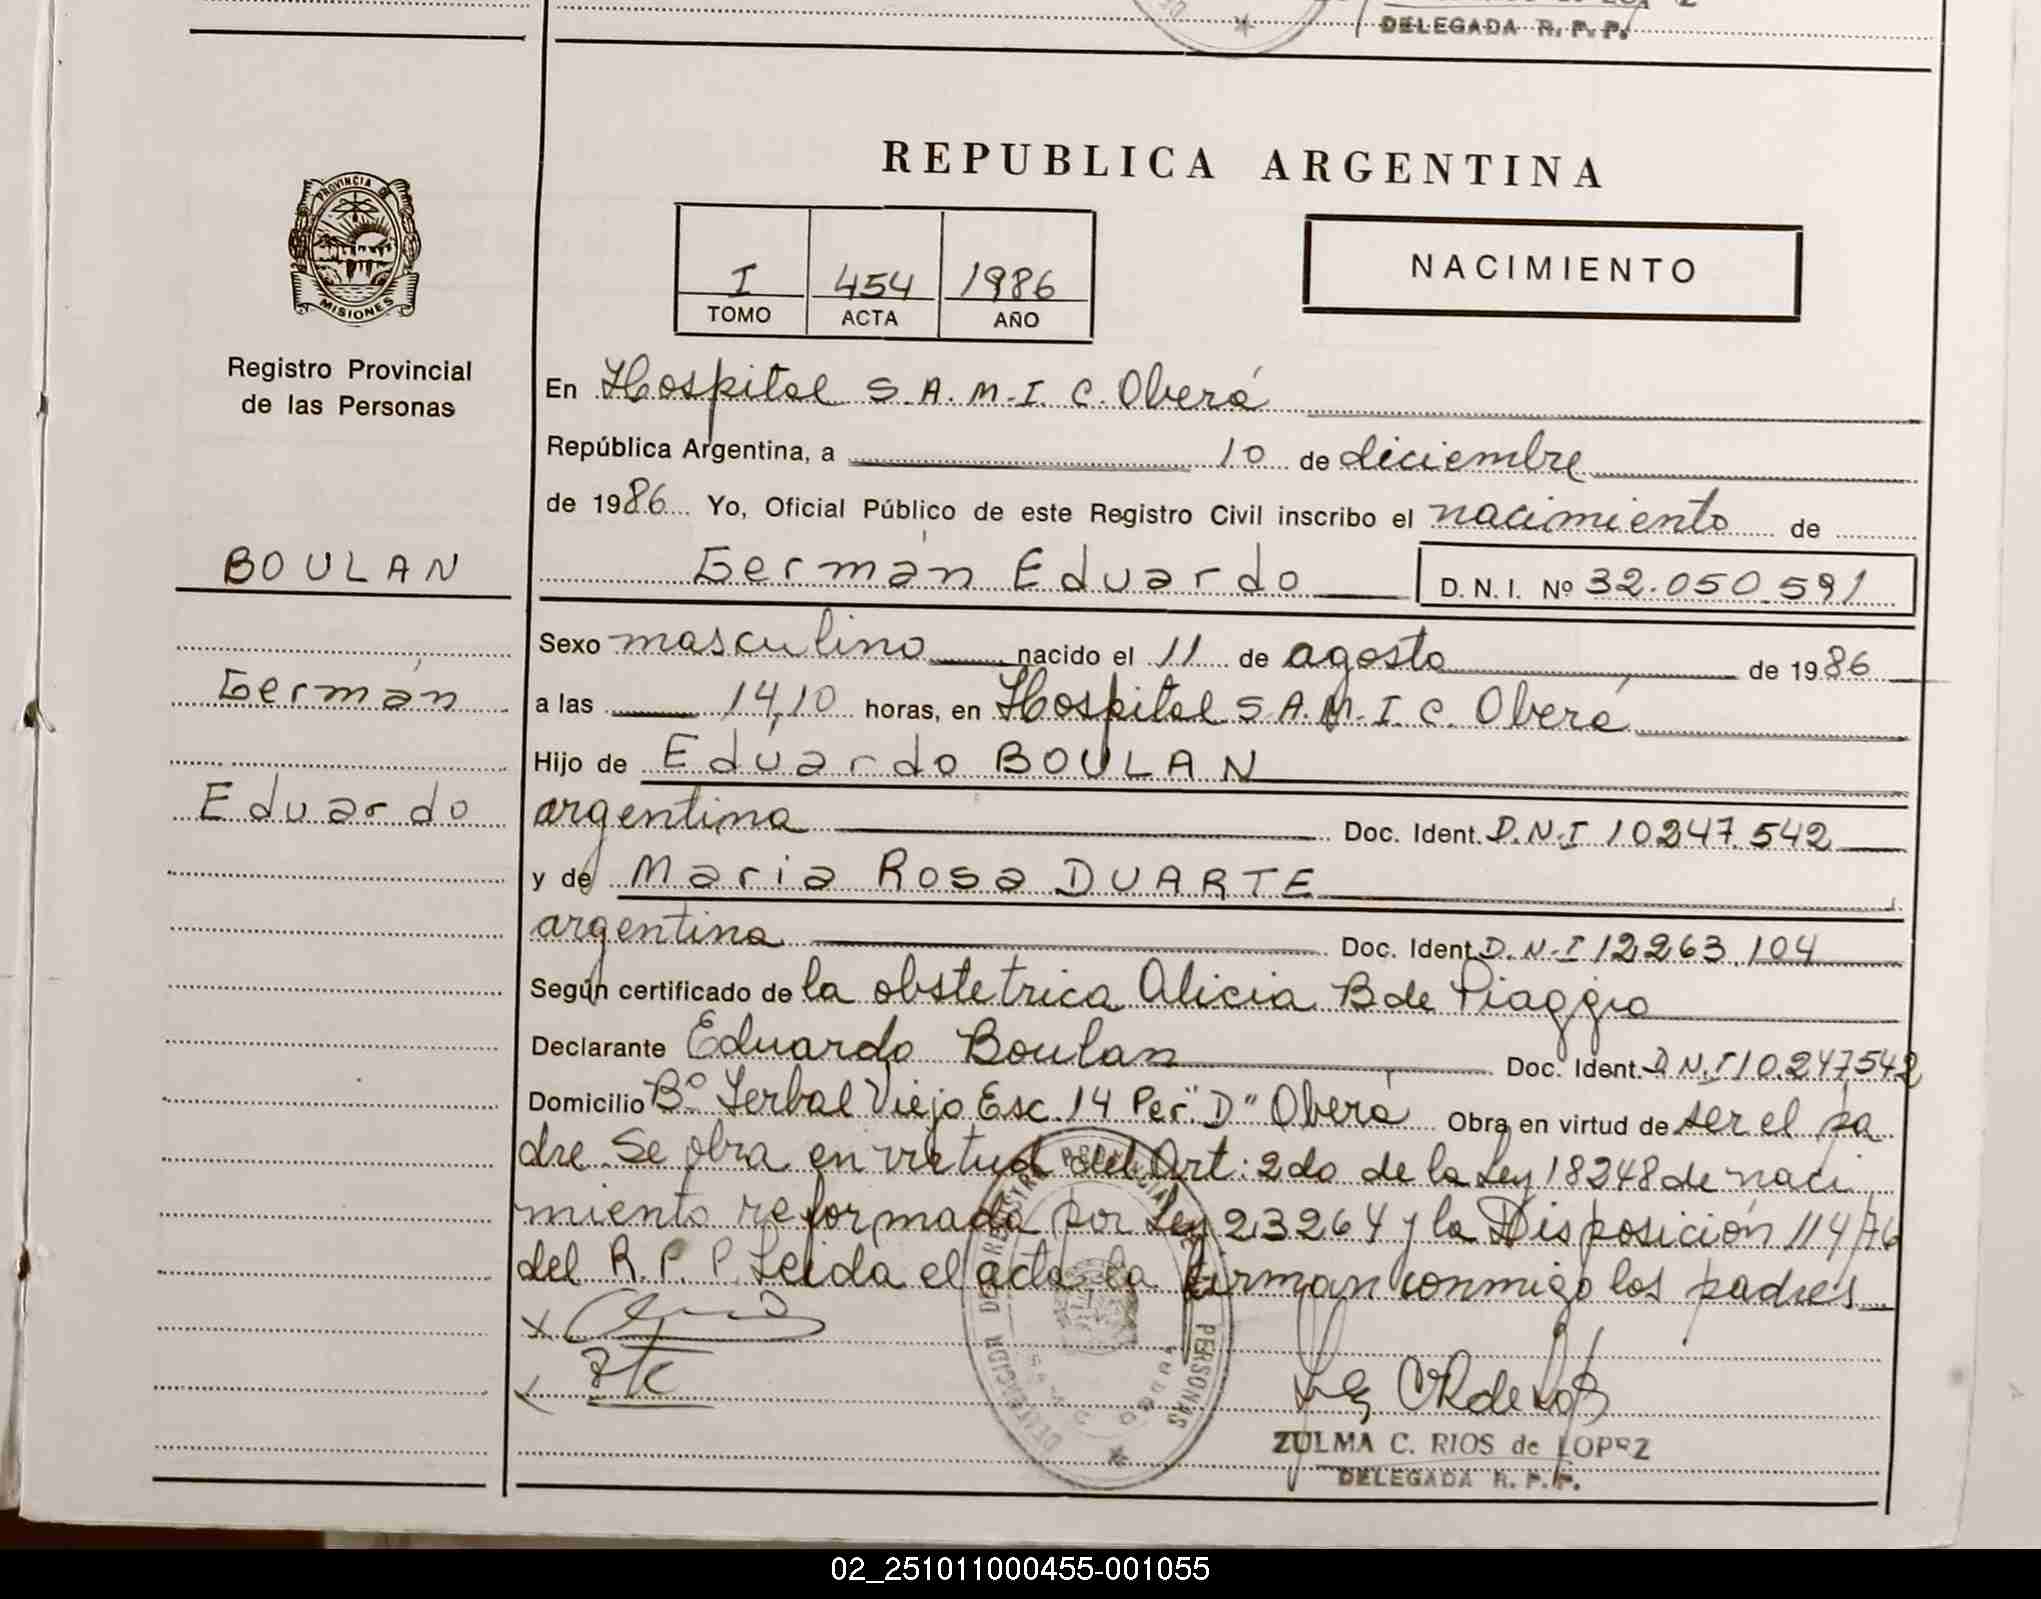 DELEGADA R. P. P.
REPUBLICA ARGENTINA
PROVINCIA DE
MISIONES
I 454 1986
TOMO ACTA AÑO
NACIMIENTO
Registro Provincial
de las Personas
En Hospital S.A.M.I.C. Oberá
República Argentina, a 10 de diciembre
de 1986 Yo, Oficial Público de este Registro Civil inscribo el nacimiento de
BOULAN
Germán Eduardo D.N.I. Nº 32.050.591
Sexo masculino nacido el 11 de agosto de 1986
Germán
a las 14,10 horas, en Hospital S.A.M.I.C. Oberá
Hijo de Eduardo BOULAN
Eduardo
argentina Doc. Ident. D.N.I 10.247.542
y de Maria Rosa DUARTE
argentina Doc. Ident. D.N.I 12.263.104
Según certificado de la obstetrica Alicia B de Piaggio
Declarante Eduardo Boulan Doc. Ident. D.N.I 10.247.542
Domicilio Bº Yerbal Viejo Esc. 14 Per. "D" Oberá Obra en virtud de ser el pa
dre. Se obra en virtud del Art: 2do de la Ley 18248 de naci
miento reformada por Ley 23264 y la Disposición 114/76
del R.P.P. Leida el acta, la firman conmigo los padres
DELEGACION DE REGISTRO PROVINCIAL DE PERSONAS
ZULMA C. RIOS de LOPEZ
DELEGADA R. P. P.
02_251011000455-001055